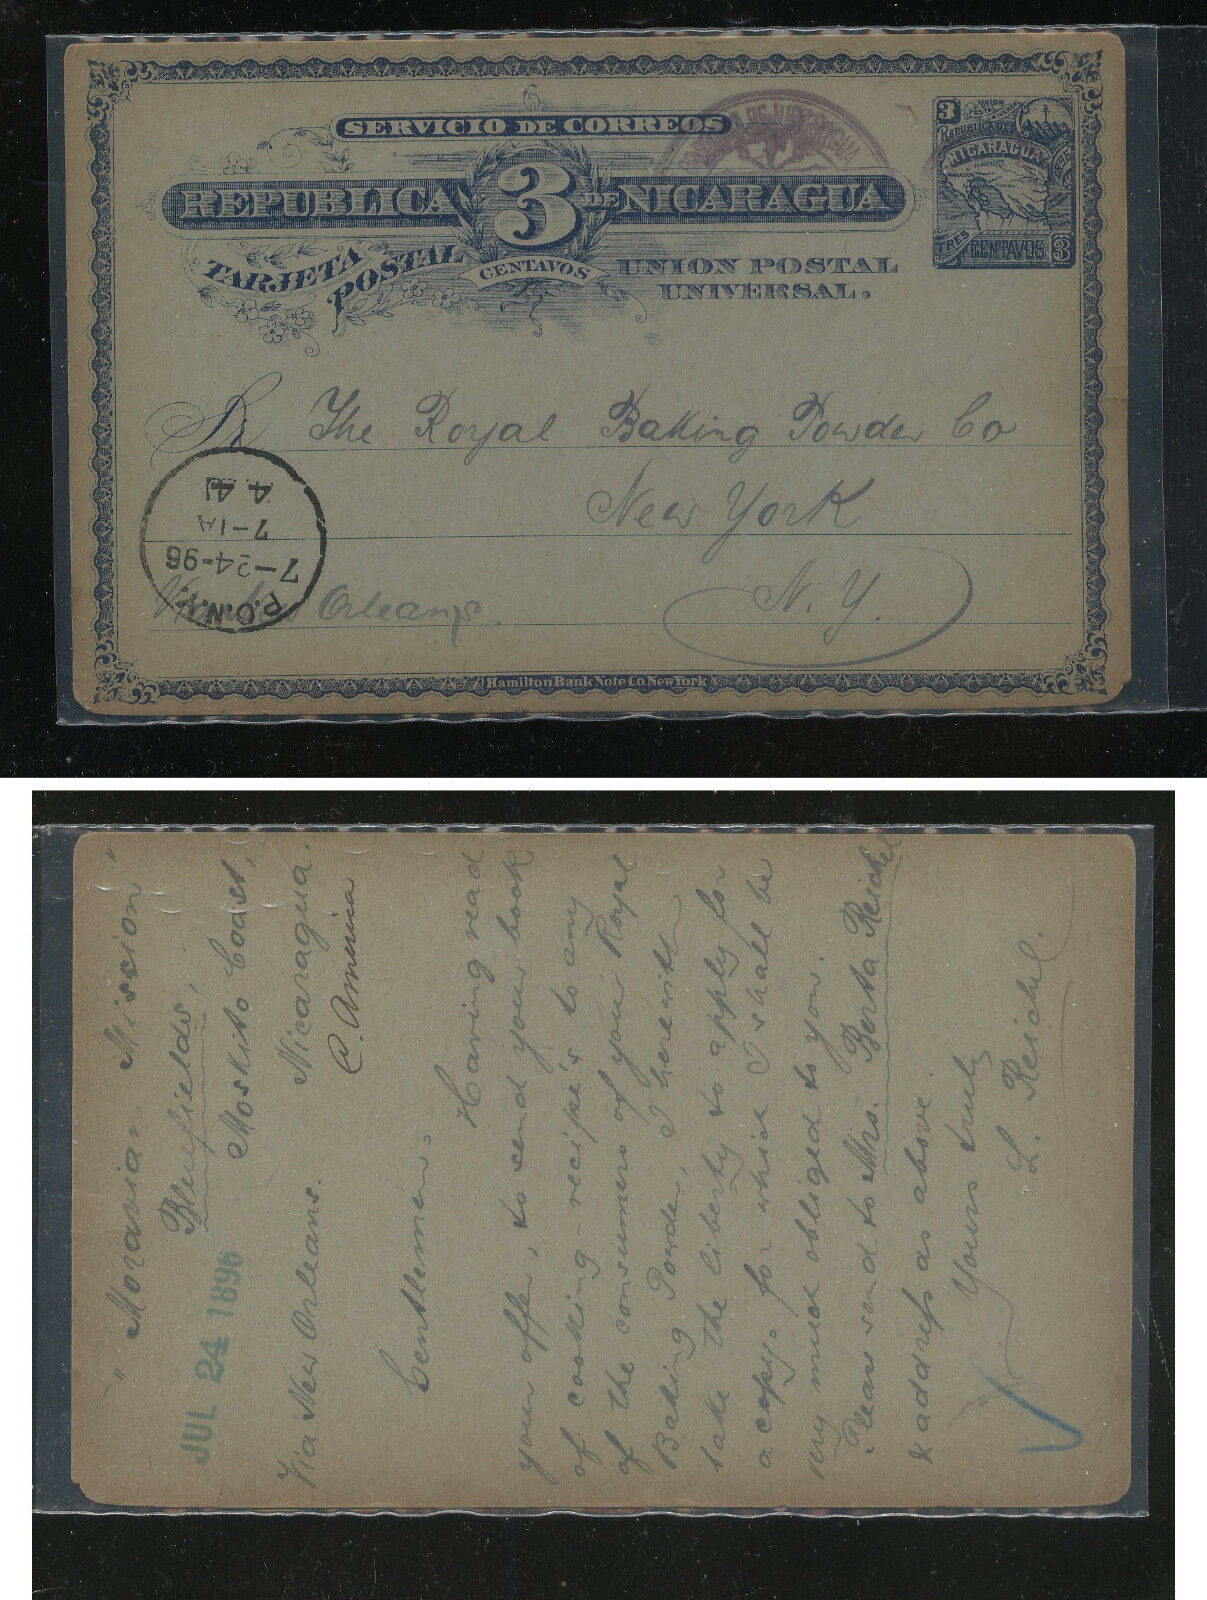 SERVICIO DE CORREOS
REPUBLICA 3 DE NICARAGUA
TARJETA POSTAL
CENTAVOS
UNION POSTAL
UNIVERSAL.
3 UNION POSTAL UNIVERSAL
REPUBLICA DE
NICARAGUA
1896
TRES CENTAVOS 3
Sr. The Royal Baking Powder Co
New York
N. Y.
Orleans.
P.O.N.Y.
7-24-96
7-1A
4.
Hamilton Bank Note Co. New York
"Moravian Mission"
Bluefields,
Moskito Coast,
JUL 24 1896
Via New Orleans. Nicaragua.
C. America
Gentlemen.
Having read
your offer, to send your book
of cooking-recipe's to any
of the consumers of your Royal
Baking Powder, I herewith
take the liberty to apply for
a copy. for which I shall be
very much obliged to you.
Please send to Mrs. Berta Reichel
& addreſs as above
Yours truly
L. Reichel.